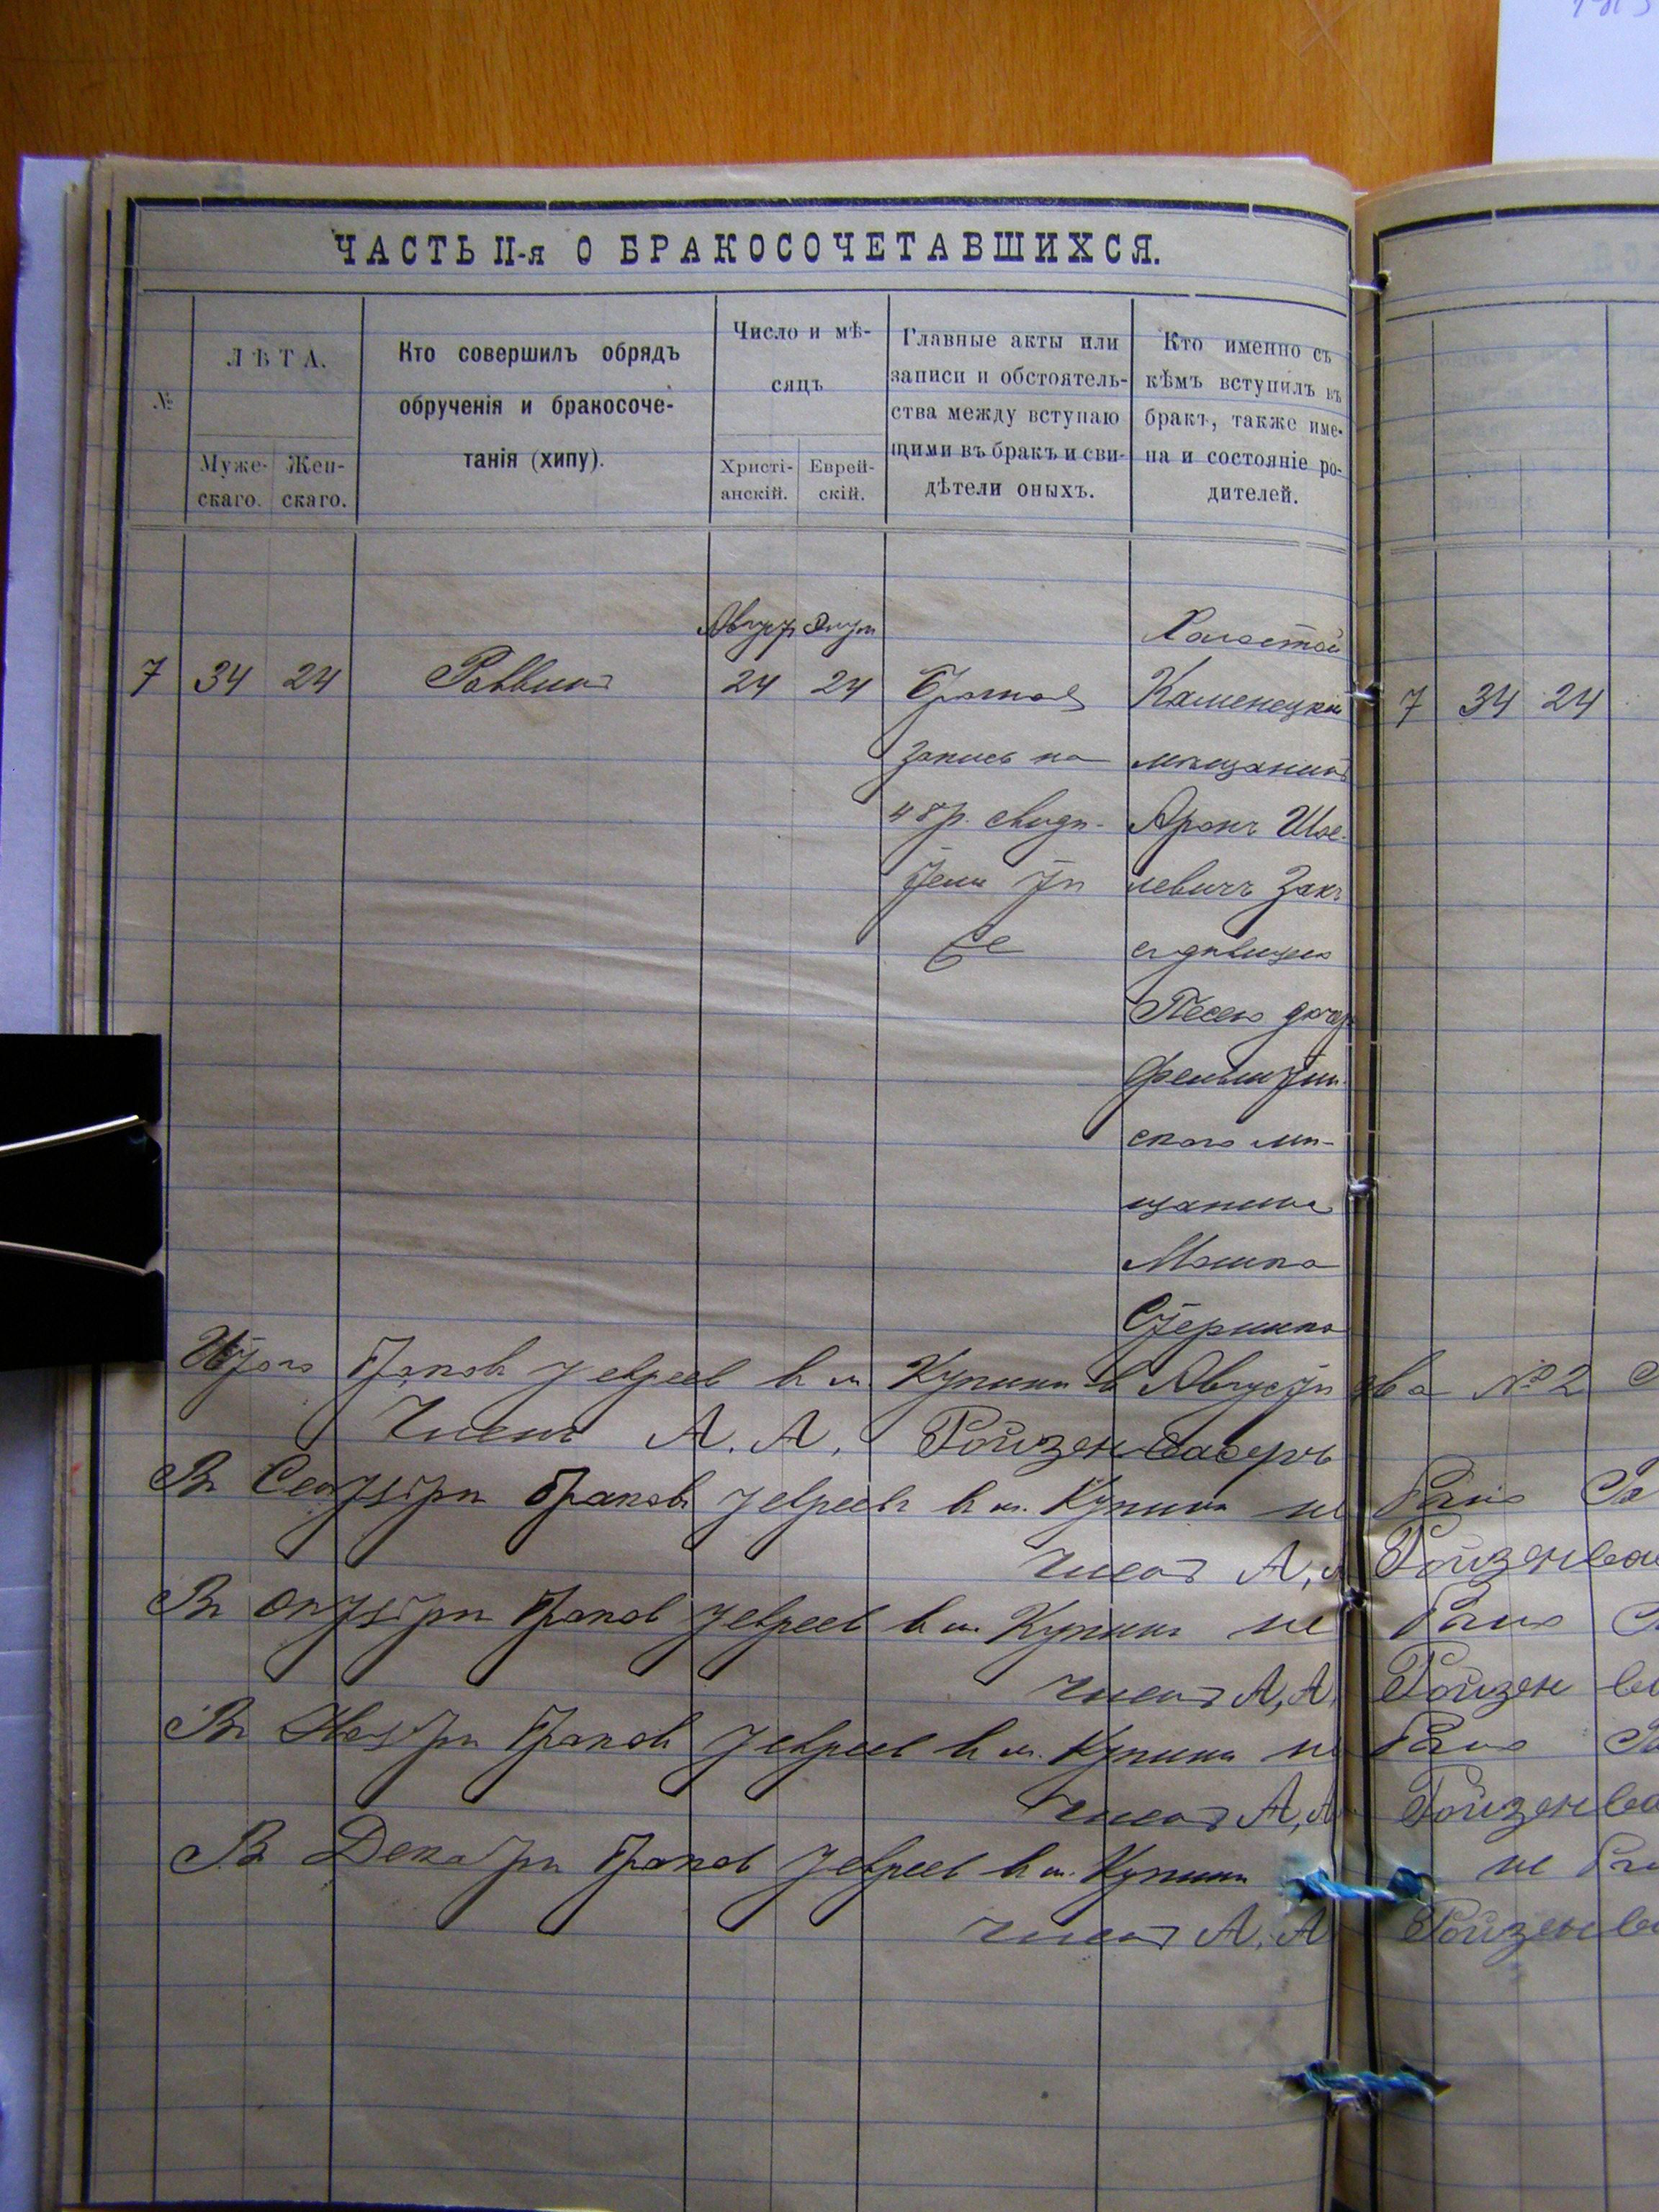 ЧАСТЬ II-я О БРАКОСОЧЕТАВШИХСЯ.
№
ЛѢТА.
Муже-
скаго.
Жен-
скаго.
Кто совершилъ обрядъ
обрученія и бракосоче-
танія (хипу).
Число и мѣ-
сяцъ
Христі-
анскій.
Еврей-
скій.
Главные акты или
записи и обстоятель-
ства между вступаю
щими въ бракъ и сви-
дѣтели оныхъ.
Кто именно съ
кѣмъ вступилъ въ
бракъ, также име-
на и состояніе ро-
дителей.
7 34 24 Раввинъ
24 24
Брачная
запись на
48 р. свидѣ-
тели тѣ
же
Холостой
Каменецкій
мѣщанинъ
Аронъ Шое-
левичъ Закъ
съ дѣвицею
Песею дочер
Фельштин-
скаго мѣ-
щанина
Мошка
Стерника
7 34 24
Итого браковъ у евреевъ в м. Купинѣ в Августѣ два № 2
Членъ А. А. Ройзенвасеръ
Въ Сентябрѣ браковъ у евреевъ в м. Купинѣ не было
Членъ А, А Ройзенва
Въ Октябрѣ браковъ у евреевъ в м. Купинѣ не было
Членъ А, А, Ройзен ва
Въ Ноябрѣ браковъ у евреевъ в м. Купинѣ не было
Членъ А, А Ройзенва
Въ Декабрѣ браковъ у евреевъ в м. Купинѣ не
Членъ А, А Ройзенва